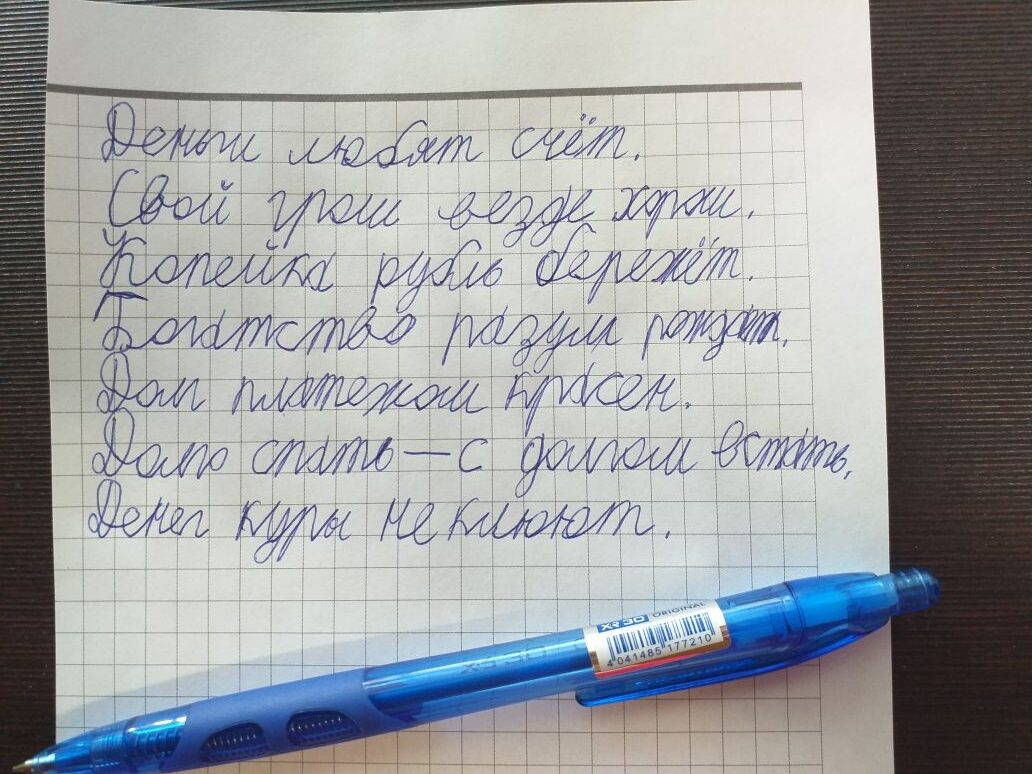 Деньги любят счёт.
Свой грош везде хорош.
Копейка рубль бережёт.
Богатство разум рождат.
Долг платежом красен.
Долго спать — с долгом встать.
Денег куры не клюют.
XR 30 ORIGINAL
4 041485 177210